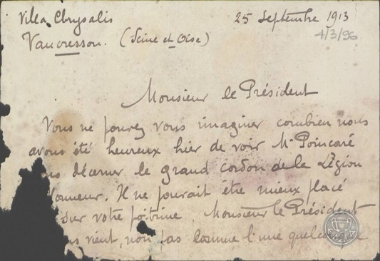 Villa Chrysalis
25 Septembre 1913
4/3/96
Vaucresson. (Seine et Oise)
Monsieur le Président
Vous ne pouvez vous imaginer combien nous
avons été heureux hier de voir Mr Poincaré
décerner le grand cordon de la Légion
Il ne pouvait être mieux placé
sur votre poitrine. Monsieur le Président
vient, non pas comme l'une